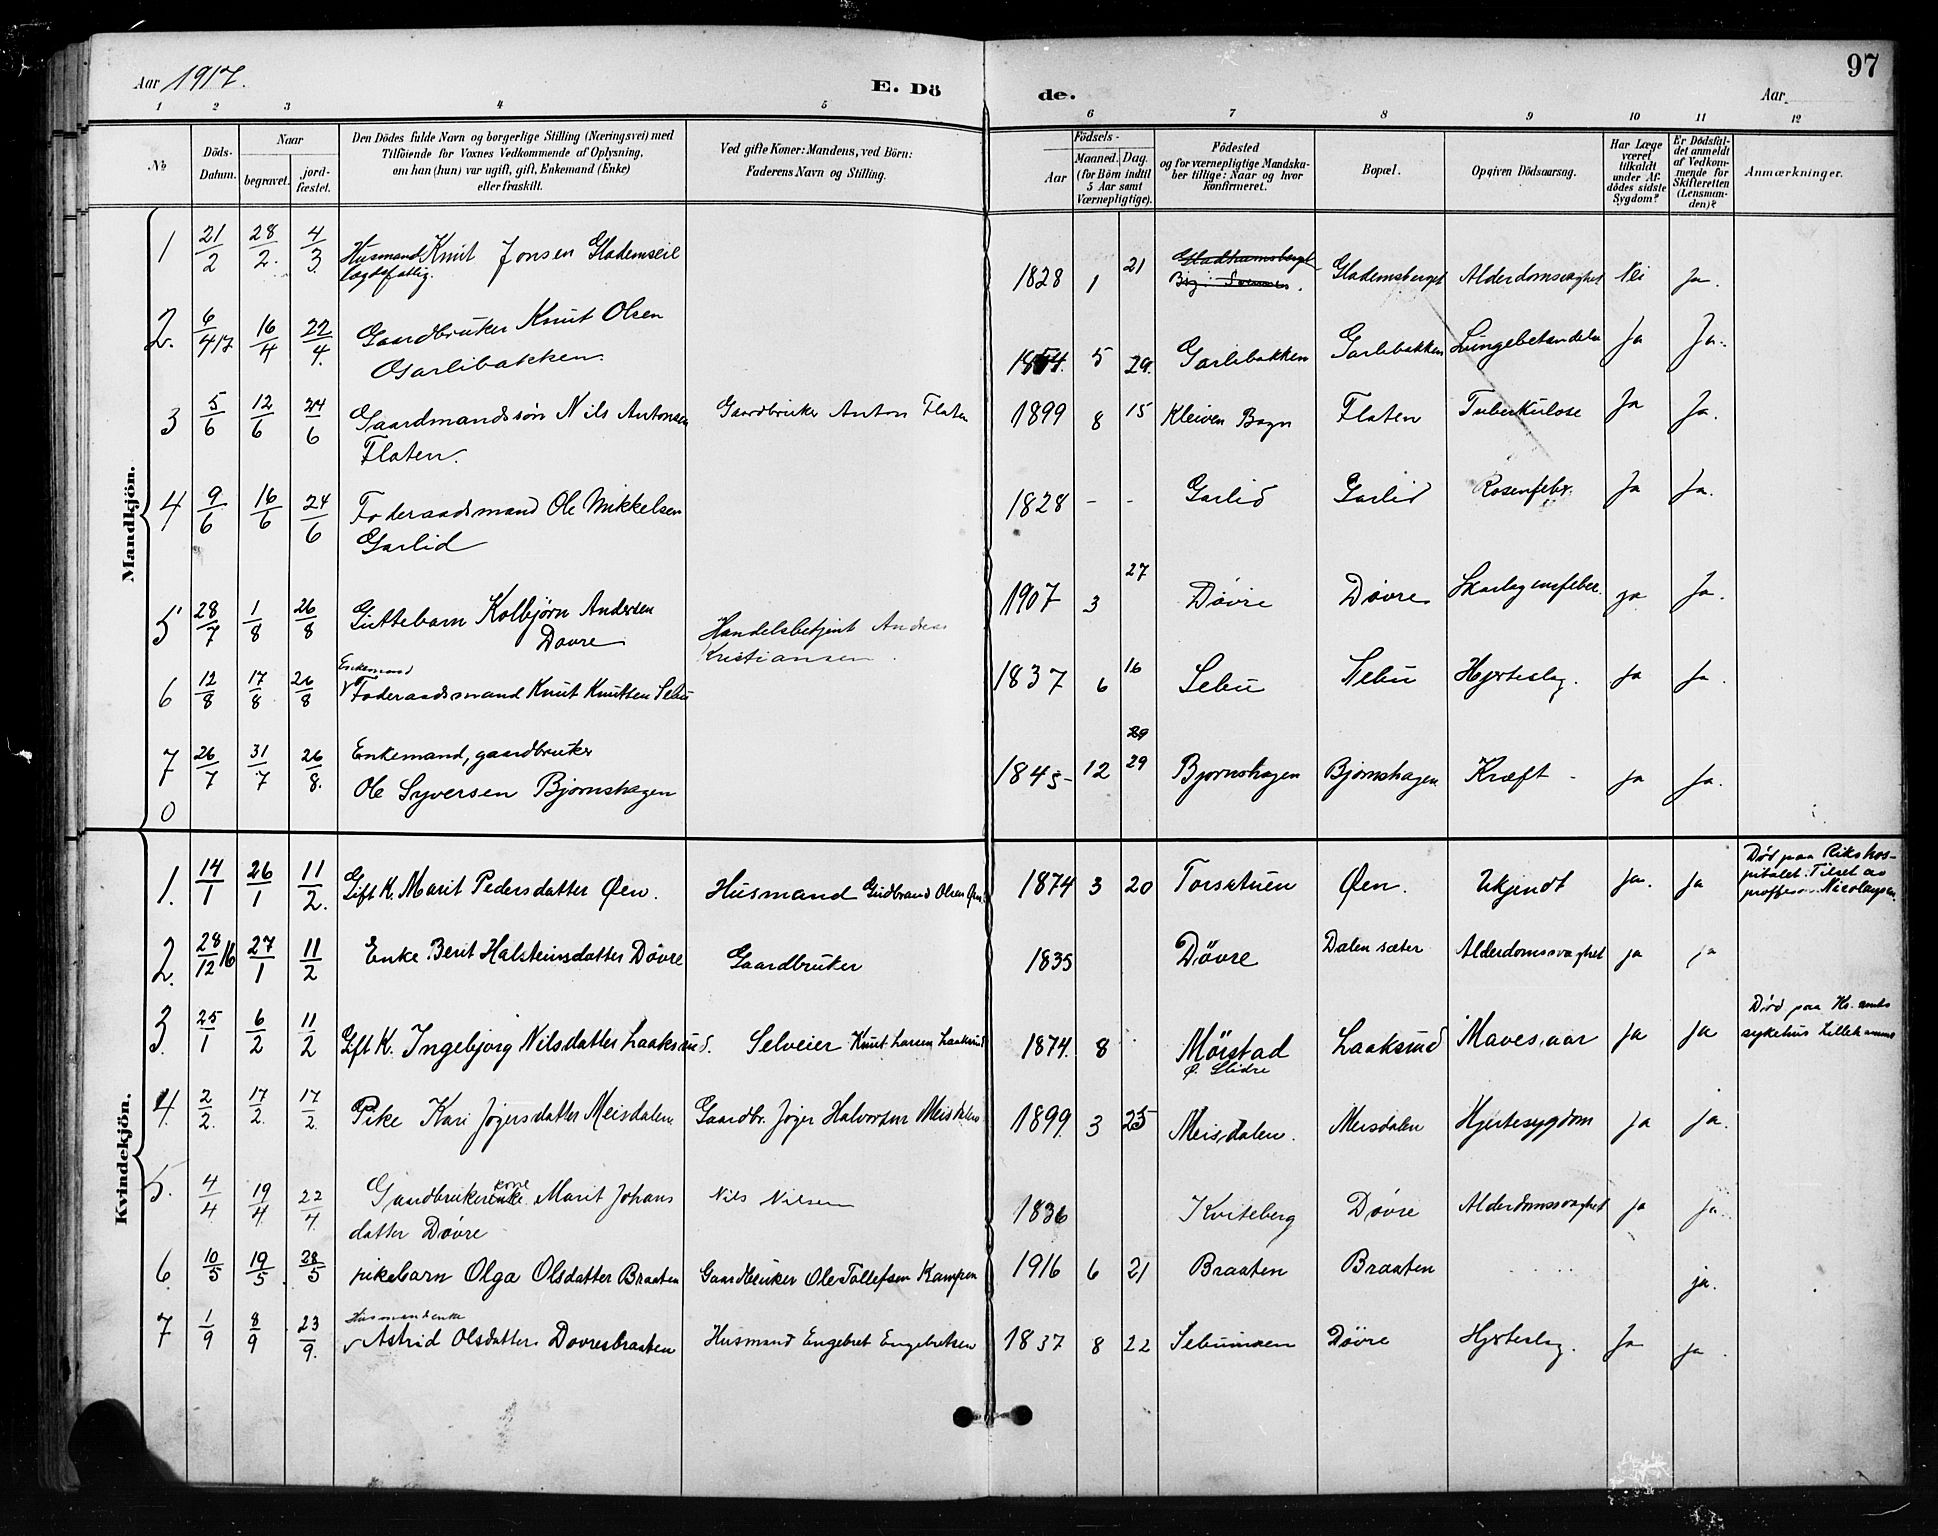 97
Aar 1917.
E. Dö de.
Aar
1 2 3 4 5 6 7 8 9 10 11 12
No
Döds-Datum.
Naar
begravet.
jord-fæstet.
Den Dödes fulde Navn og borgerlige Stilling (Næringsvei) med
Tilföiende for Voxnes Vedkommende af Oplysning,
om han (hun) var ugift, gift, Enkemand (Enke)
eller fraskilt.
Ved gifte Koner: Mandens, ved Börn:
Faderens Navn og Stilling.
Födsels-
Aar
Maaned. Dag.
(for Börn indtil
5 Aar samt
Værnepligtige).
Födested
og for værnepligtige Mandska-
ber tillige: Naar og hvor
konfirmeret.
Bopæl.
Opgiven Dödsaarsag.
Har Læge
været
tilkaldt
under Af-
dödes sidste
Sygdom?
Er Dödsfal-
det anmeldt
af Vedkom-
mende for
Skifteretten
(Lensman-
den)?
Anmærkninger.
Mandkjön.
1 21/2 28/2. 4/3. Husmand Knut Jonsen Glademseie 1828 1 21 Gladhamsberget Glademsberget Alderdomsvaghet Nei Ja.
lægdsfattig.
2. 6/4 17 16/4 22/4. Gaardbruker Knut Olsen 1854. 5 29. Garlibakken Garlibakken Lungebetændelse Ja Ja.
Garlibakken.
3 5/6 12/6 24/6 Gaardmandssøn Nils Antonsen Gaardbruker Anton Flaten 1899 8 15 Kleiven Bagn Flaten Tuberkulose Ja Ja.
Flaten.
4 9/6 16/6 24/6 Foderaadsmand Ole Mikkelsen 1828 - - Garlid Garlid Rosenfeber. Ja Ja.
Garlid
5 28/7 1/8 26/8 Guttebarn Kolbjørn Andersen Handelsbetjent Andreas 1907 3 27 Døvre Døvre Skarlagensfeber. ja Ja.
Dovre Kristiansen.
Enkemand
6 12/8 17/8 26/8 Foderaadsmand Knut Knutsen Sebu 1837 6 16 Sebu Sebu Hjerteslag. ja ja.
7 26/7 31/7 26/8. Enkemand, gaardbruker 1845- 12 29 29 Bjørnshagen Bjørnshagen Kræft - ja Ja.
Ole Syversen Bjørnshagen
0
Kvindekjön.
1. 14/1 26/1 11/2. Gift K. Marit Pedersdatter Øen. Husmand Gudbrand Olsen Øen. 1874 3 20 Torsatuen Øen. Ukjendt ja. ja Død paa Rikshos-
pitalet. Tilset av
proffessor Nicolaysen.
2. 28/12 16 27/1 11/2 Enke Berit Halsteinsdatter Døvre Gaardbruker 1835 Døvre Dalen sæter Alderdomssvaghet ja ja
3. 25/1 6/2 11/2 Gift K. Ingebjørg Nilsdatter Laaksrud. Selveier Knut Larsen Laaksrud 1874. 8 Møistad Laaksrud Mavesaar ja ja Død paa Kr. amts
Ø. Slidre sykehus Lillehammer
4. 2/2. 17/2. 17/2. Pike Kari Jøgersdatter Meisdalen Gaardbr. Jøger Halvorsen Meisdalen 1899. 3 25 Meisdalen. Meisdalen Hjertesygdom ja ja.
5. 4/4 19/4. 22/4. Gaardbrukerenke kone Marit Johans Nils Nilsen 1836 Kviteberg Døvre Alderdomssvaghet ja ja.
datter Døvre
6. 10/5 19/5 28/5 pikebarn Olga Olsdatter Braaten Gaardbruker Ole Tollefsen Kampen 1916 6 21 Braaten Braaten ja.
Husmandenke
7 1/9 8/9 23/9. Astrid Olsdatter Dovresbraaten Husmand Engebret Engebretsen 1837 8 22 Sebumoen Døvre Hjerteslag. Ja ja.